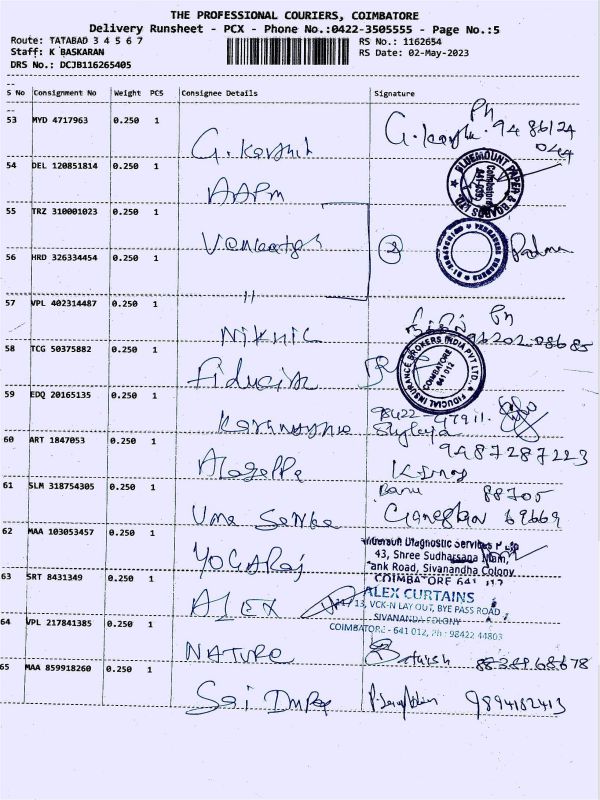 THE PROFESSIONAL COURIERS, COIMBATORE
Delivery Runsheet - PCX - Phone No.:0422-3505555 - Page No.:5
Route: TATABAD 3 4 5 6 7
Staff: K BASKARAN
DRS No.: DCJB116265405
RS No.: 1162654
RS Date: 02-May-2023
S No Consignment No Weight PCS Consignee Details Signature
53 MYD 4717963 0.250 1 G. Karthik G. Karthi Ph 9486124 044
54 DEL 120851814 0.250 1 AAPM BLUEMOUNT PAPER & BOARDS LTD. Coimbatore 641-039
55 TRZ 310001023 0.250 1 Venkatesh 2 Padma
56 HRD 326334454 0.250 1 "
57 VPL 402314487 0.250 1 Nikhil Ph 96202.08685
58 TCG 50375882 0.250 1 Fiducial FIDUCIAL INSURANCE BROKERS INDIA PVT LTD. COIMBATORE 641 012
59 EDQ 20165135 0.250 1 98422-47911
60 ART 1847053 0.250 1 9487287223
61 SLM 318754305 0.250 1 Uma Banu 88705 Ganeshan 69669
62 MAA 103053457 0.250 1 YOGARaj Diagnostic Services P Ltd
43, Shree Sudharsana
Tank Road, Sivanandha Colony
COIMBATORE 641 012
63 SRT 8431349 0.250 1 ALEX ALEX CURTAINS
13, VCK-N LAY OUT, BYE PASS ROAD
SIVANANDA COLONY
COIMBATORE - 641 012, Ph : 98422 44803
64 VPL 217841385 0.250 1 NATURE 88389 68678
65 MAA 859918260 0.250 1 Sai 9894182413